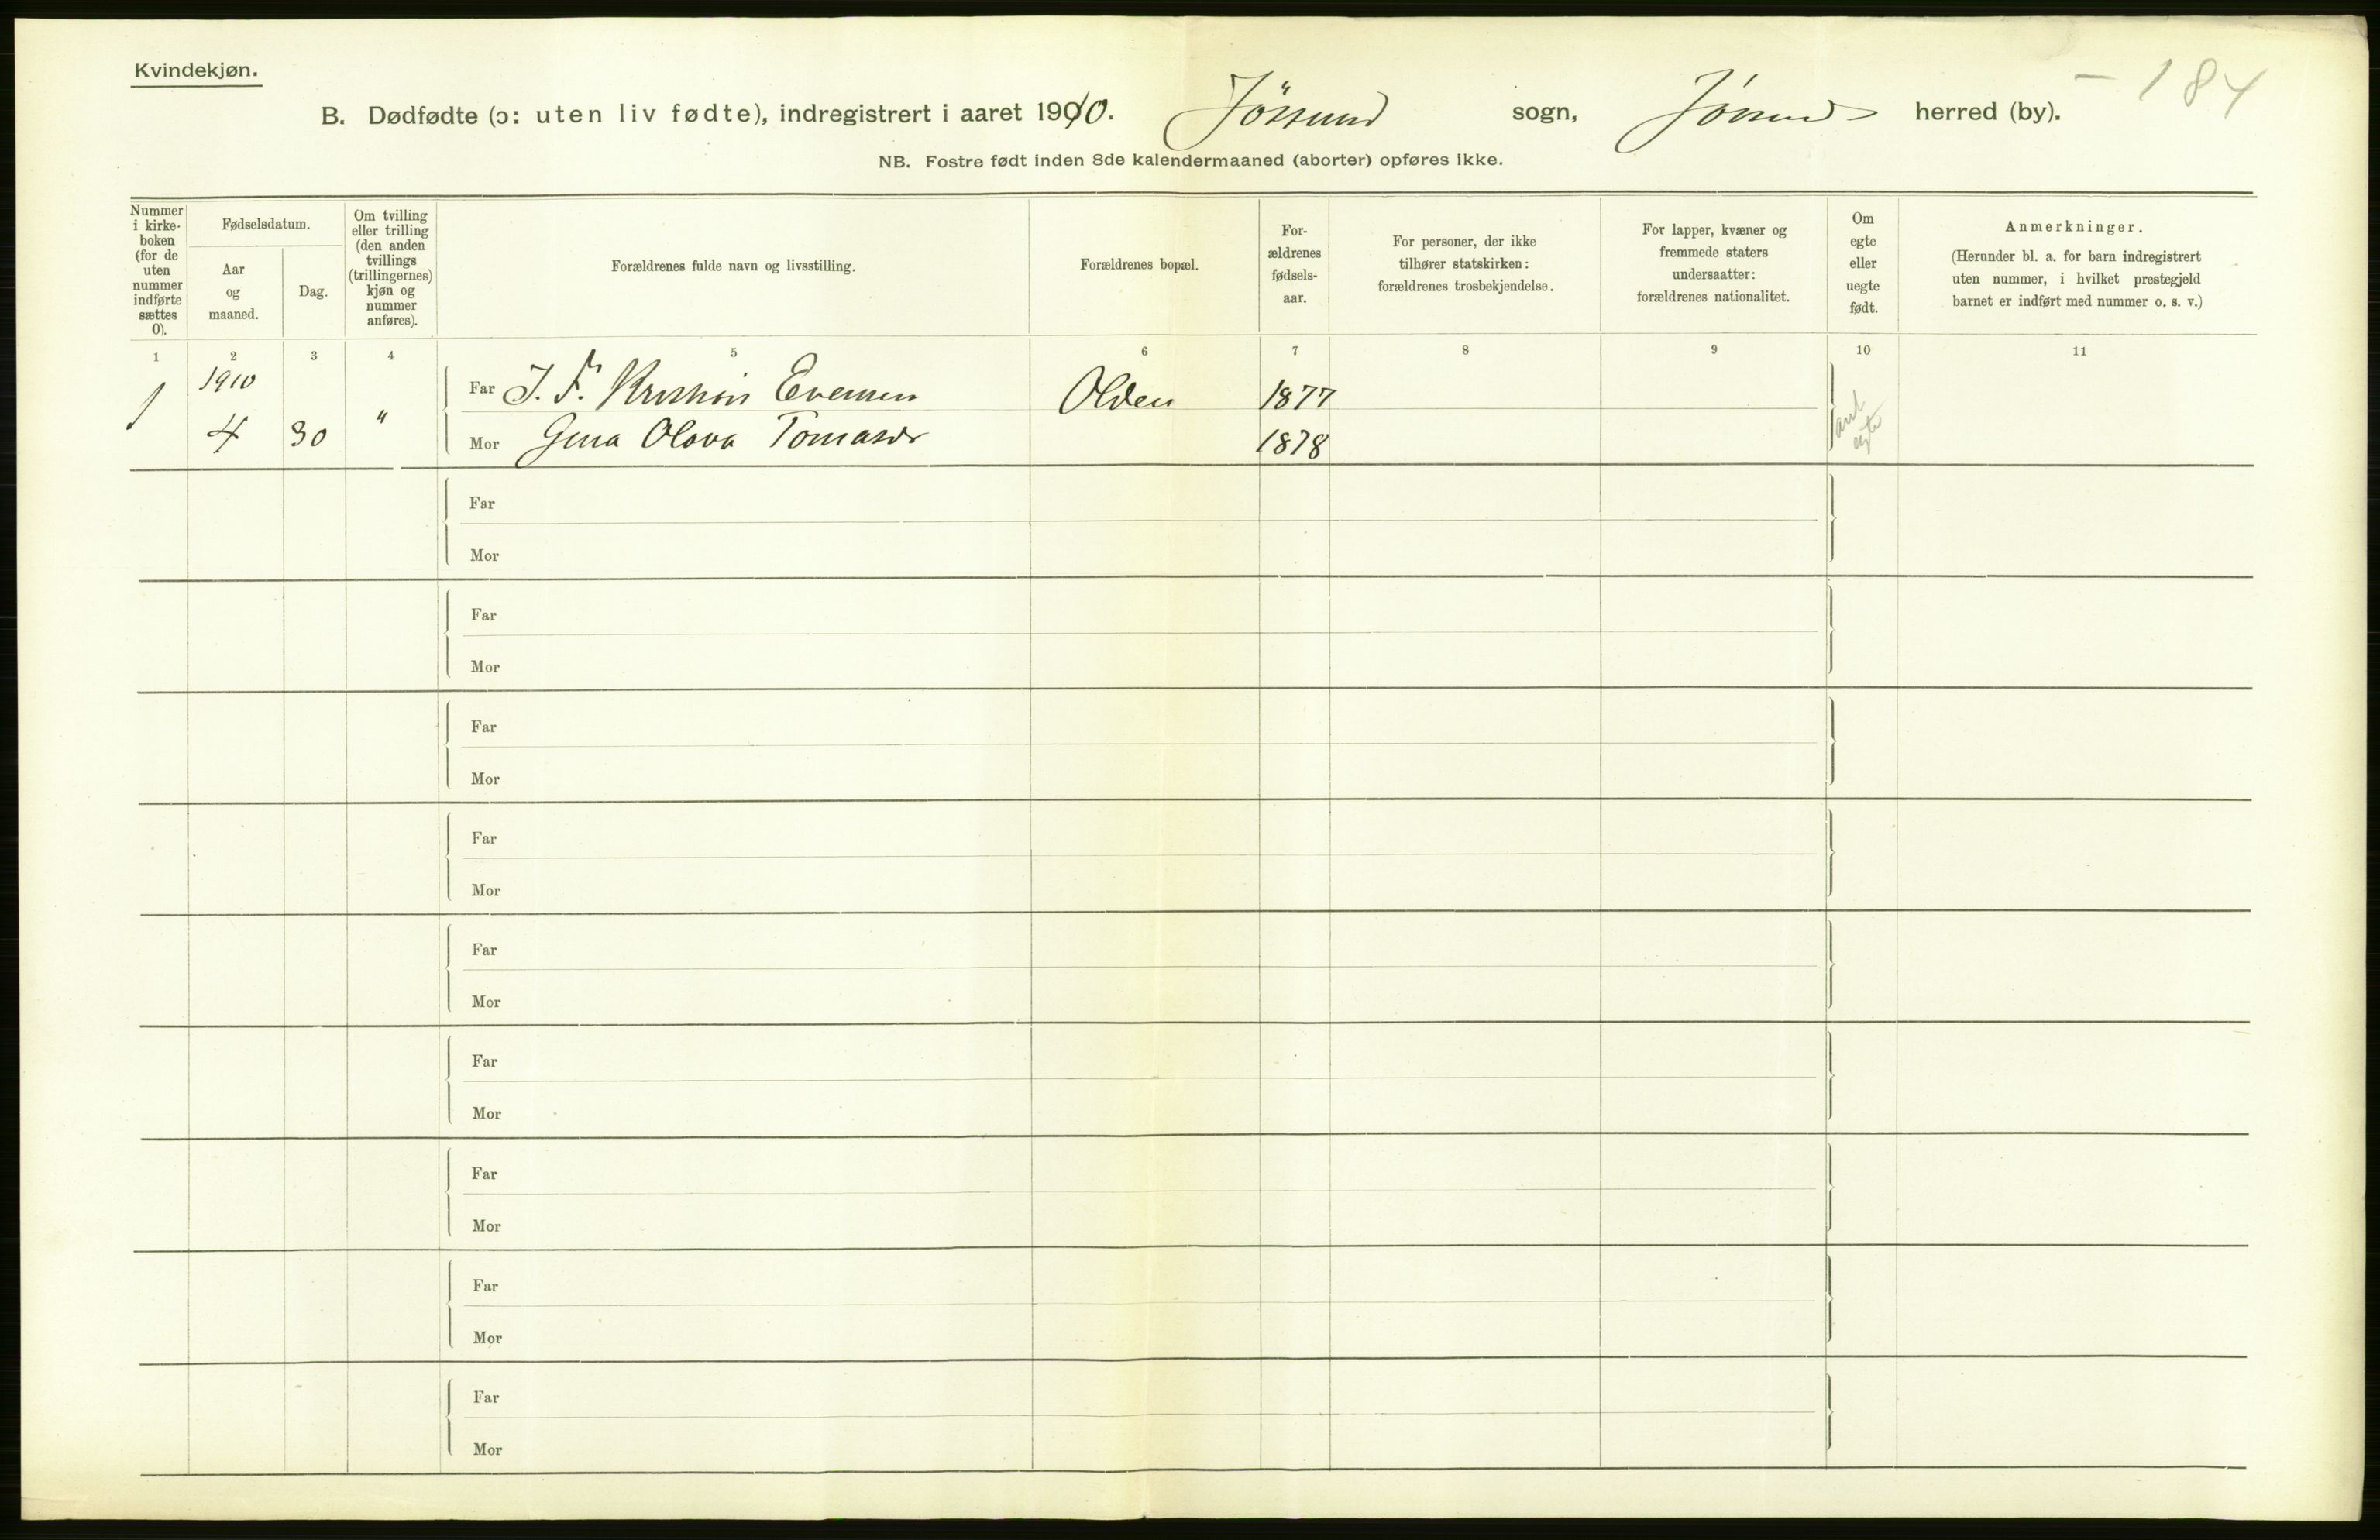 Kvindekjøn.
184
B. Dødfødte (ɔ: uten liv fødte), indregistrert i aaret 1910. Jössund sogn, Jössund herred (by).
NB. Fostre født inden 8de kalendermaaned (aborter) opføres ikke.
Nummer i kirke-boken (for de uten nummer indførte sættes 0).
Fødselsdatum.
Aar og maaned.
Dag.
Om tvilling eller trilling (den anden tvillings (trillingernes) kjøn og nummer anføres).
Forældrenes fulde navn og livsstilling.
Forældrenes bopæl.
For-ældrenes fødsels-aar.
For personer, der ikke tilhører statskirken: forældrenes trosbekjendelse.
For lapper, kvæner og fremmede staters undersaatter: forældrenes nationalitet.
Om egte eller uegte født.
Anmerkninger.
(Herunder bl. a. for barn indregistrert uten nummer, i hvilket prestegjeld barnet er indført med nummer o. s. v.)
1 2 3 4 5 6 7 8 9 10 11
1 1910 Far J. F. Kristian Evensen Olden 1877
4 30 " Mor Gina Olava Tomasdr 1878
ant egte
Far
Mor
Far
Mor
Far
Mor
Far
Mor
Far
Mor
Far
Mor
Far
Mor
Far
Mor
Far
Mor